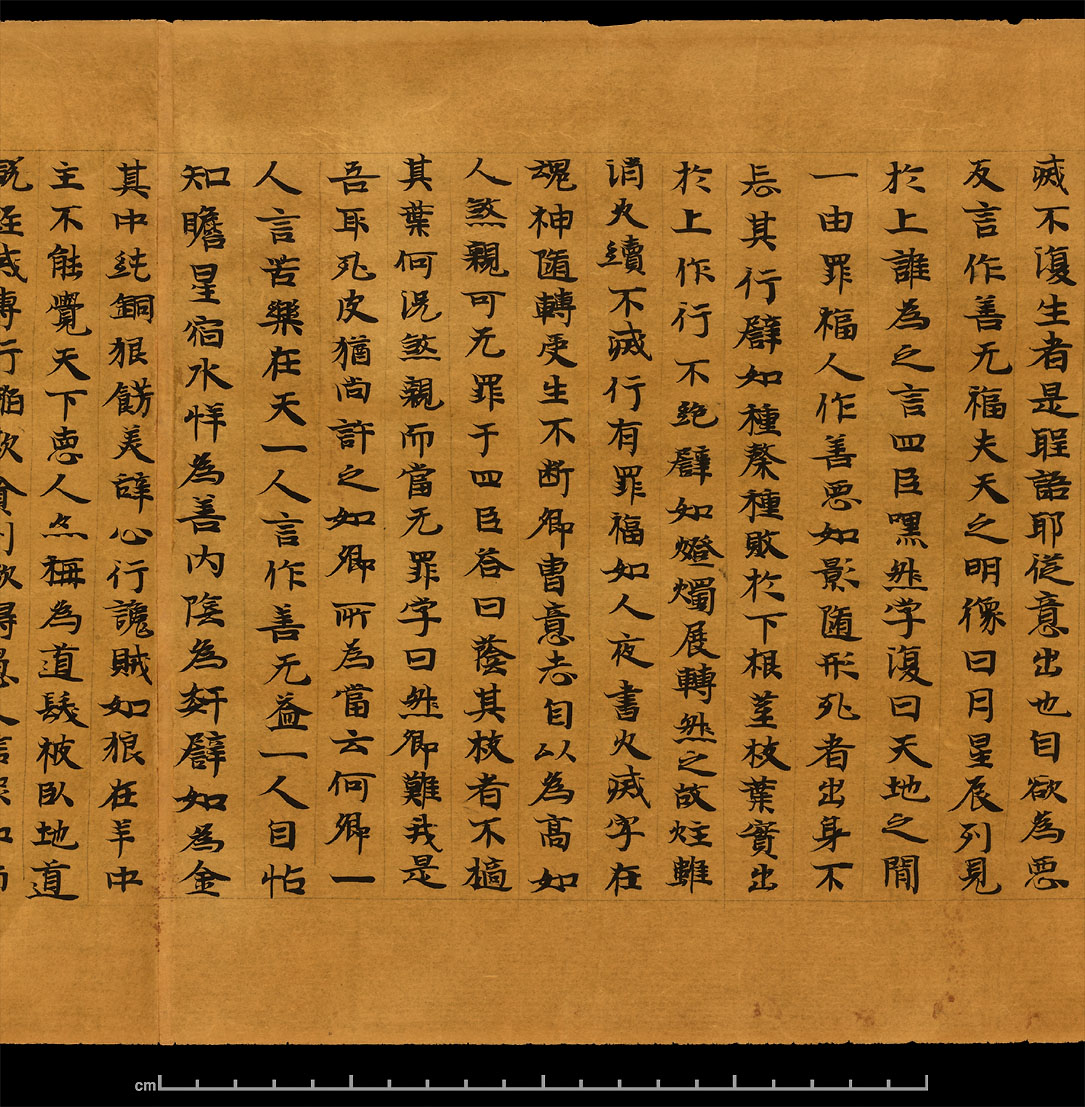 滅不復生者是聖語耶從意出也自欲為惡
反言作善无福夫天之明像日月星辰列見
於上誰為之言四臣嘿然字復曰天地之間
一由罪福人作善惡如影隨形死者出身不
忘其行譬如種𥝩種敗於下根莖枝葉實出
於上作行不絕譬如燈燭展轉然之故炷雖
消火續不滅行有罪福如人夜書火滅字在
魂神隨轉受生不断卿曹意志自以為高如
人煞親可无罪于四臣荅曰蔭其枝者不擿
其葉何況煞親而當无罪字曰然卿難我是
吾耳死皮猶尚許之如卿所為當云何卿一
人言苦樂在天一人言作善无益一人自怙
知瞻星宿水恠為善内陰為姧譬如為金
其中純銅狠餝美辭心行讒賊如狼在羊中
主不能覺天下惡人亦稱為道髮被臥地道